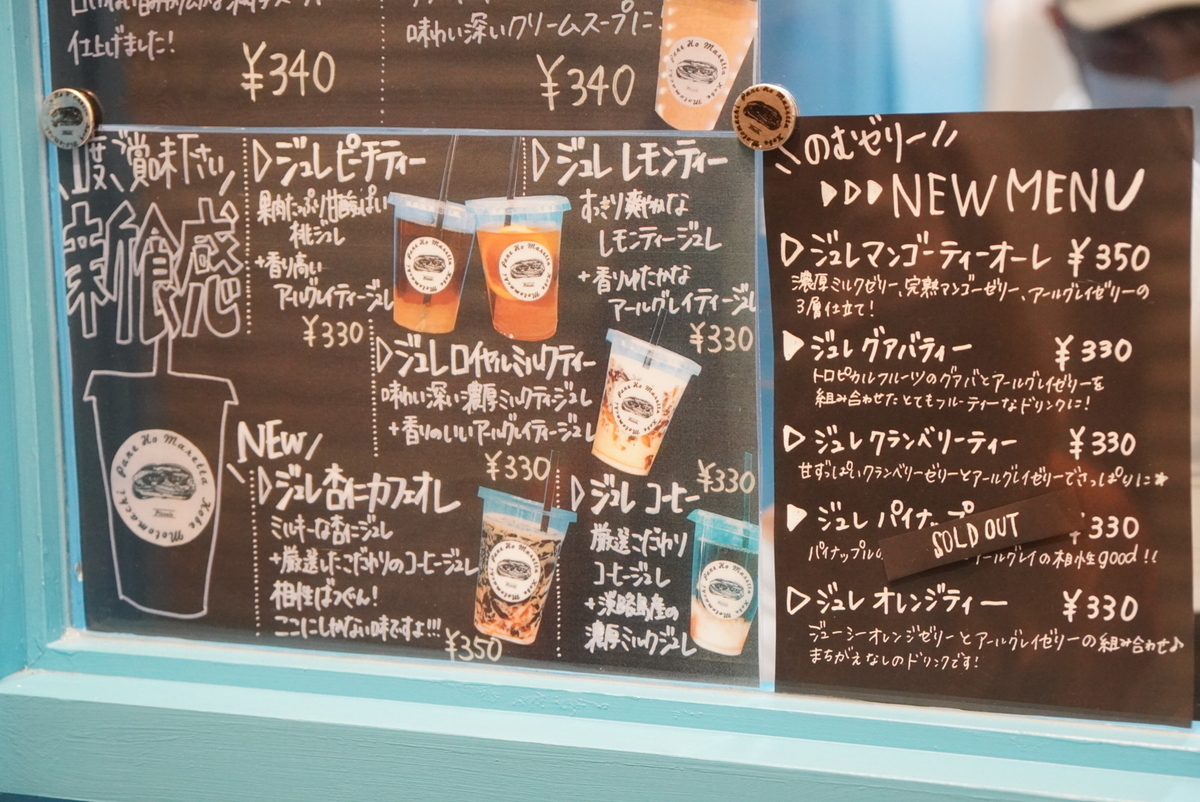 仕上げました!
¥340
味わい深いクリームスープに
¥340
1度ご賞味下さい
新食感
▷ジュレピーチティー
果肉たっぷり甘酸っぱい
桃ジュレ
+香り高い
アールグレイティージュレ
¥330
▷ジュレ レモンティー
すっきり爽やかな
レモンティージュレ
+香りゆたかな
アールグレイティージュレ
¥330
▷ジュレロイヤルミルクティー
味わい深い濃厚ミルクティージュレ
+香りのいいアールグレイティージュレ
¥330
NEW
▷ジュレ杏仁カフェオレ
ミルキーな杏仁ジュレ
+厳選したこだわりのコーヒージュレ
相性ばつぐん!
ここにしかない味ですよ!!!
¥350
▷ジュレ コーヒー
¥330
厳選こだわり
コーヒージュレ
+淡路島産の
濃厚ミルクジュレ
Pane Ho Maretta
Motomachi Kobe
のむゼリー
▷▷▷NEW MENU
▷ジュレマンゴーティーオーレ ¥350
濃厚ミルクゼリー、完熟マンゴーゼリー、アールグレイゼリーの
3層仕立て!
▶ジュレ グァバティー ¥330
トロピカルフルーツのグァバとアールグレイゼリーを
組み合わせたとてもフルーティーなドリンクに!
▷ジュレ クランベリーティー ¥330
甘ずっぱいクランベリーゼリーとアールグレイゼリーでさっぱりに★
▶ジュレ パイナップ 330
SOLD OUT
パイナップルの ールグレイの相性good!!
▷ジュレ オレンジティー ¥330
ジューシーオレンジゼリーとアールグレイゼリーの組み合わせ♪
まちがえなしのドリンクです!